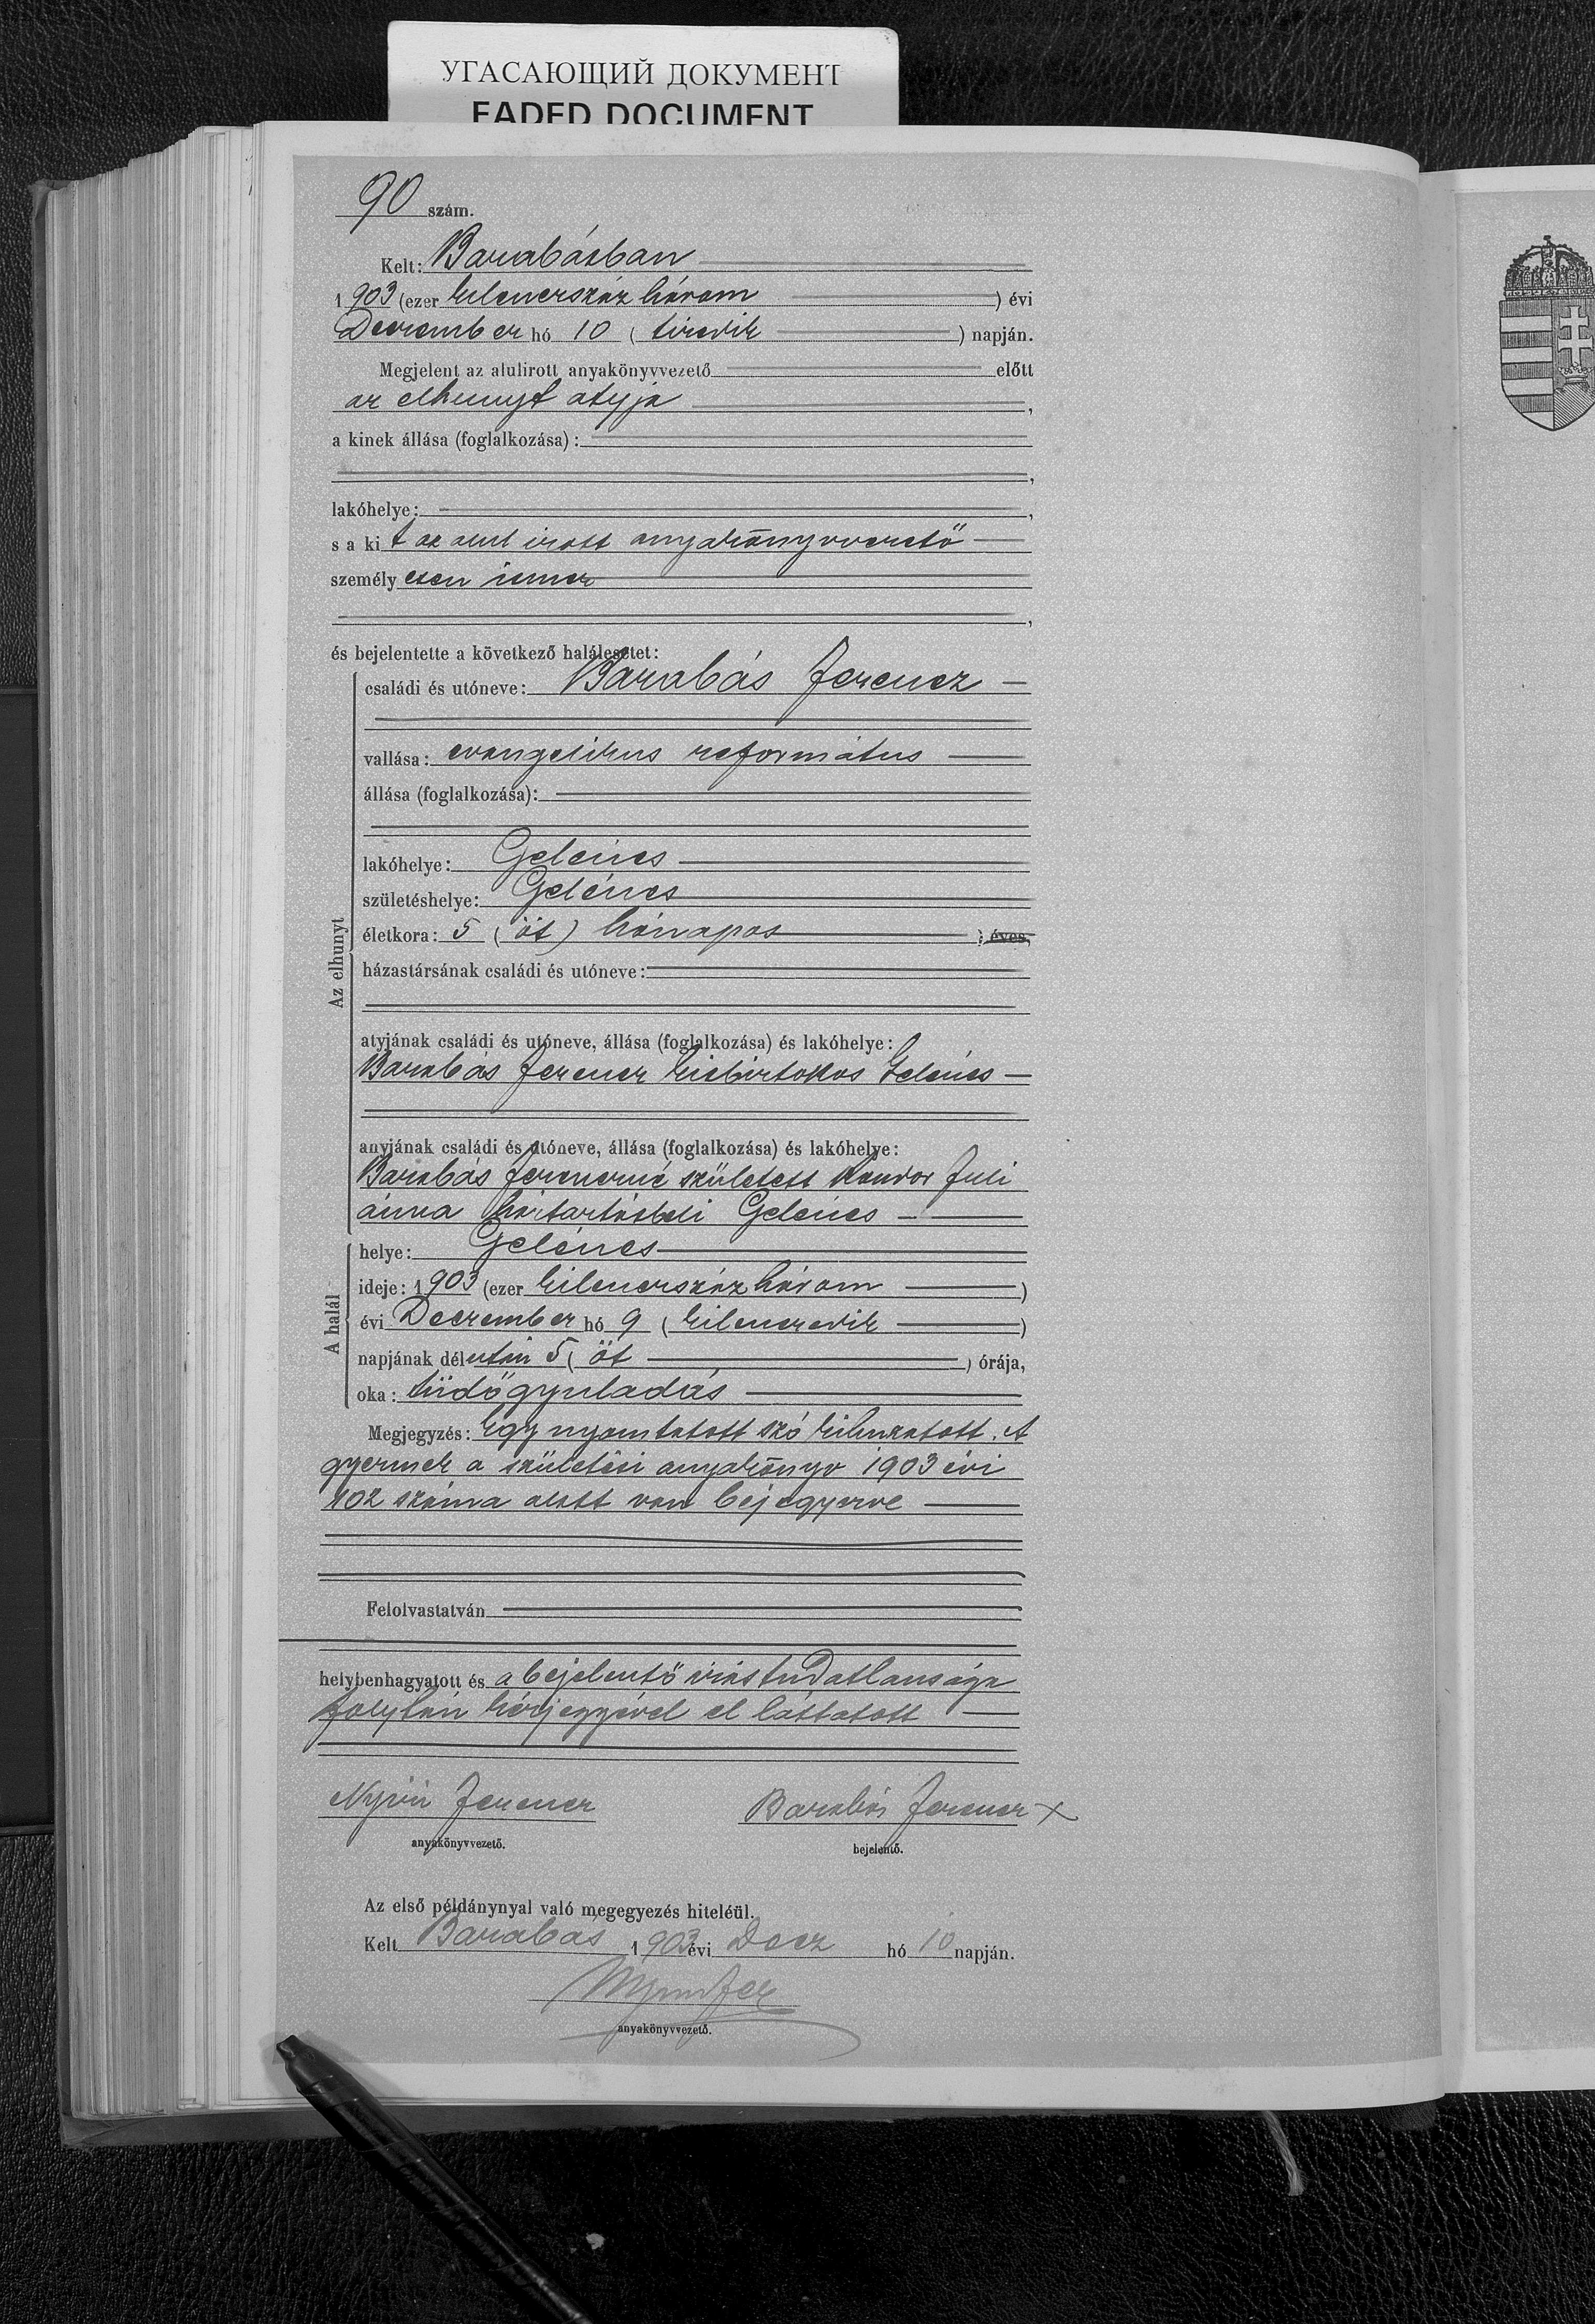 УГАСАЮЩИЙ ДОКУМЕНТ
FADED DOCUMENT
90 szám.
Kelt: Barabásban
1903 (ezer kilenczszáz három ) évi
December hó 10 ( tizedik ) napján.
Megjelent az alulirott anyakönyvvezető előtt
az elhunyt atyja ,
a kinek állása (foglalkozása):
,
lakóhelye: ,
s a ki t az alul irott anyakönyvvezető
személy esen ismer
,
és bejelentette a következő halálesetet:
családi és utóneve: Barabás Ferencz
vallása: evangelikus református
állása (foglalkozása):
Az elhunyt
lakóhelye: Gelénes
születéshelye: Gelénes
életkora: 5 ( öt ) hónapos ) éves,
házastársának családi és utóneve:
atyjának családi és utóneve, állása (foglalkozása) és lakóhelye:
Barabás Ferencz kisbirtokos Gelénes
anyjának családi és utóneve, állása (foglalkozása) és lakóhelye:
Barabás Ferenczné született Kondor Juli
ánna háztartásbeli Gelénes
A halál
helye: Gelénes
ideje: 1903 (ezer kilenczszáz három )
évi December hó 9 ( kilenczedik )
napjának délután 5 ( öt ) órája,
oka: tüdőgyuladás
Megjegyzés: Egy nyomtatott szó kihuzatott. A
gyermek a születési anyakönyv 1903 évi
102 száma alatt van bejegyezve
Felolvastatván
helybenhagyatott és a bejelentő irástudatlansága
folytán kézjegyével el láttatott
Nyiri Ferencz
anyakönyvvezető.
Barabás Ferencz x
bejelentő.
Az első példánynyal való megegyezés hiteléül.
Kelt Barabás 1903 évi Decz hó 10 napján.
anyakönyvvezető.